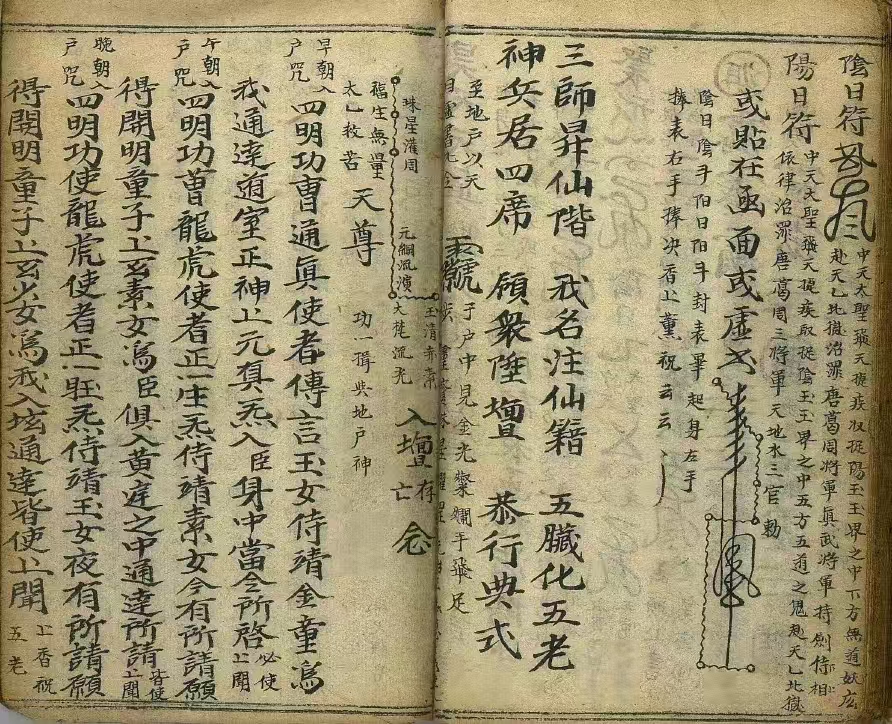 陰日符
中天大聖 天 疾收捉陽玉玉界之中下方無道妖
赴天乙北獄治罪唐葛周將軍真武將軍持劍侍相
陽日符
中天大聖 天 疾收捉陰玉玉界之中五方五道之鬼赴天乙北獄
依律治罪唐葛周三將軍天地水三官勅
或貼在函面或虛
陰日陰斗陽日陽斗封表畢起身左手
捧表右手捧决香上薰祝云云
三師昇仙階 我名注仙籍 五臟化五老
神兵居四席 願衆陞壇 恭行典式
至地戶以天
于户中見金光燦爛手 足
入壇 存亡 念
珠星灌周
元綱流演
玉清
大梵流光
福生無量
太乙救苦 天尊
功 一揖與地戶神
早朝入戶咒 四明功曹通真使者傳言玉女侍靖金童為
我通達道室正神上元真炁入臣身中當令所啓必使上聞
午朝入戶咒 四明功曹龍虎使者正一生炁侍靖素女今有所請願
得開明童子上玄素女為臣俱入黄庭之中通達所請皆使上聞
晚朝入戶咒 四明功使龍虎使者正一 炁侍靖玉女夜有所請願
得開明童子上玄少女為我入 通達皆使上聞 上香祝五老